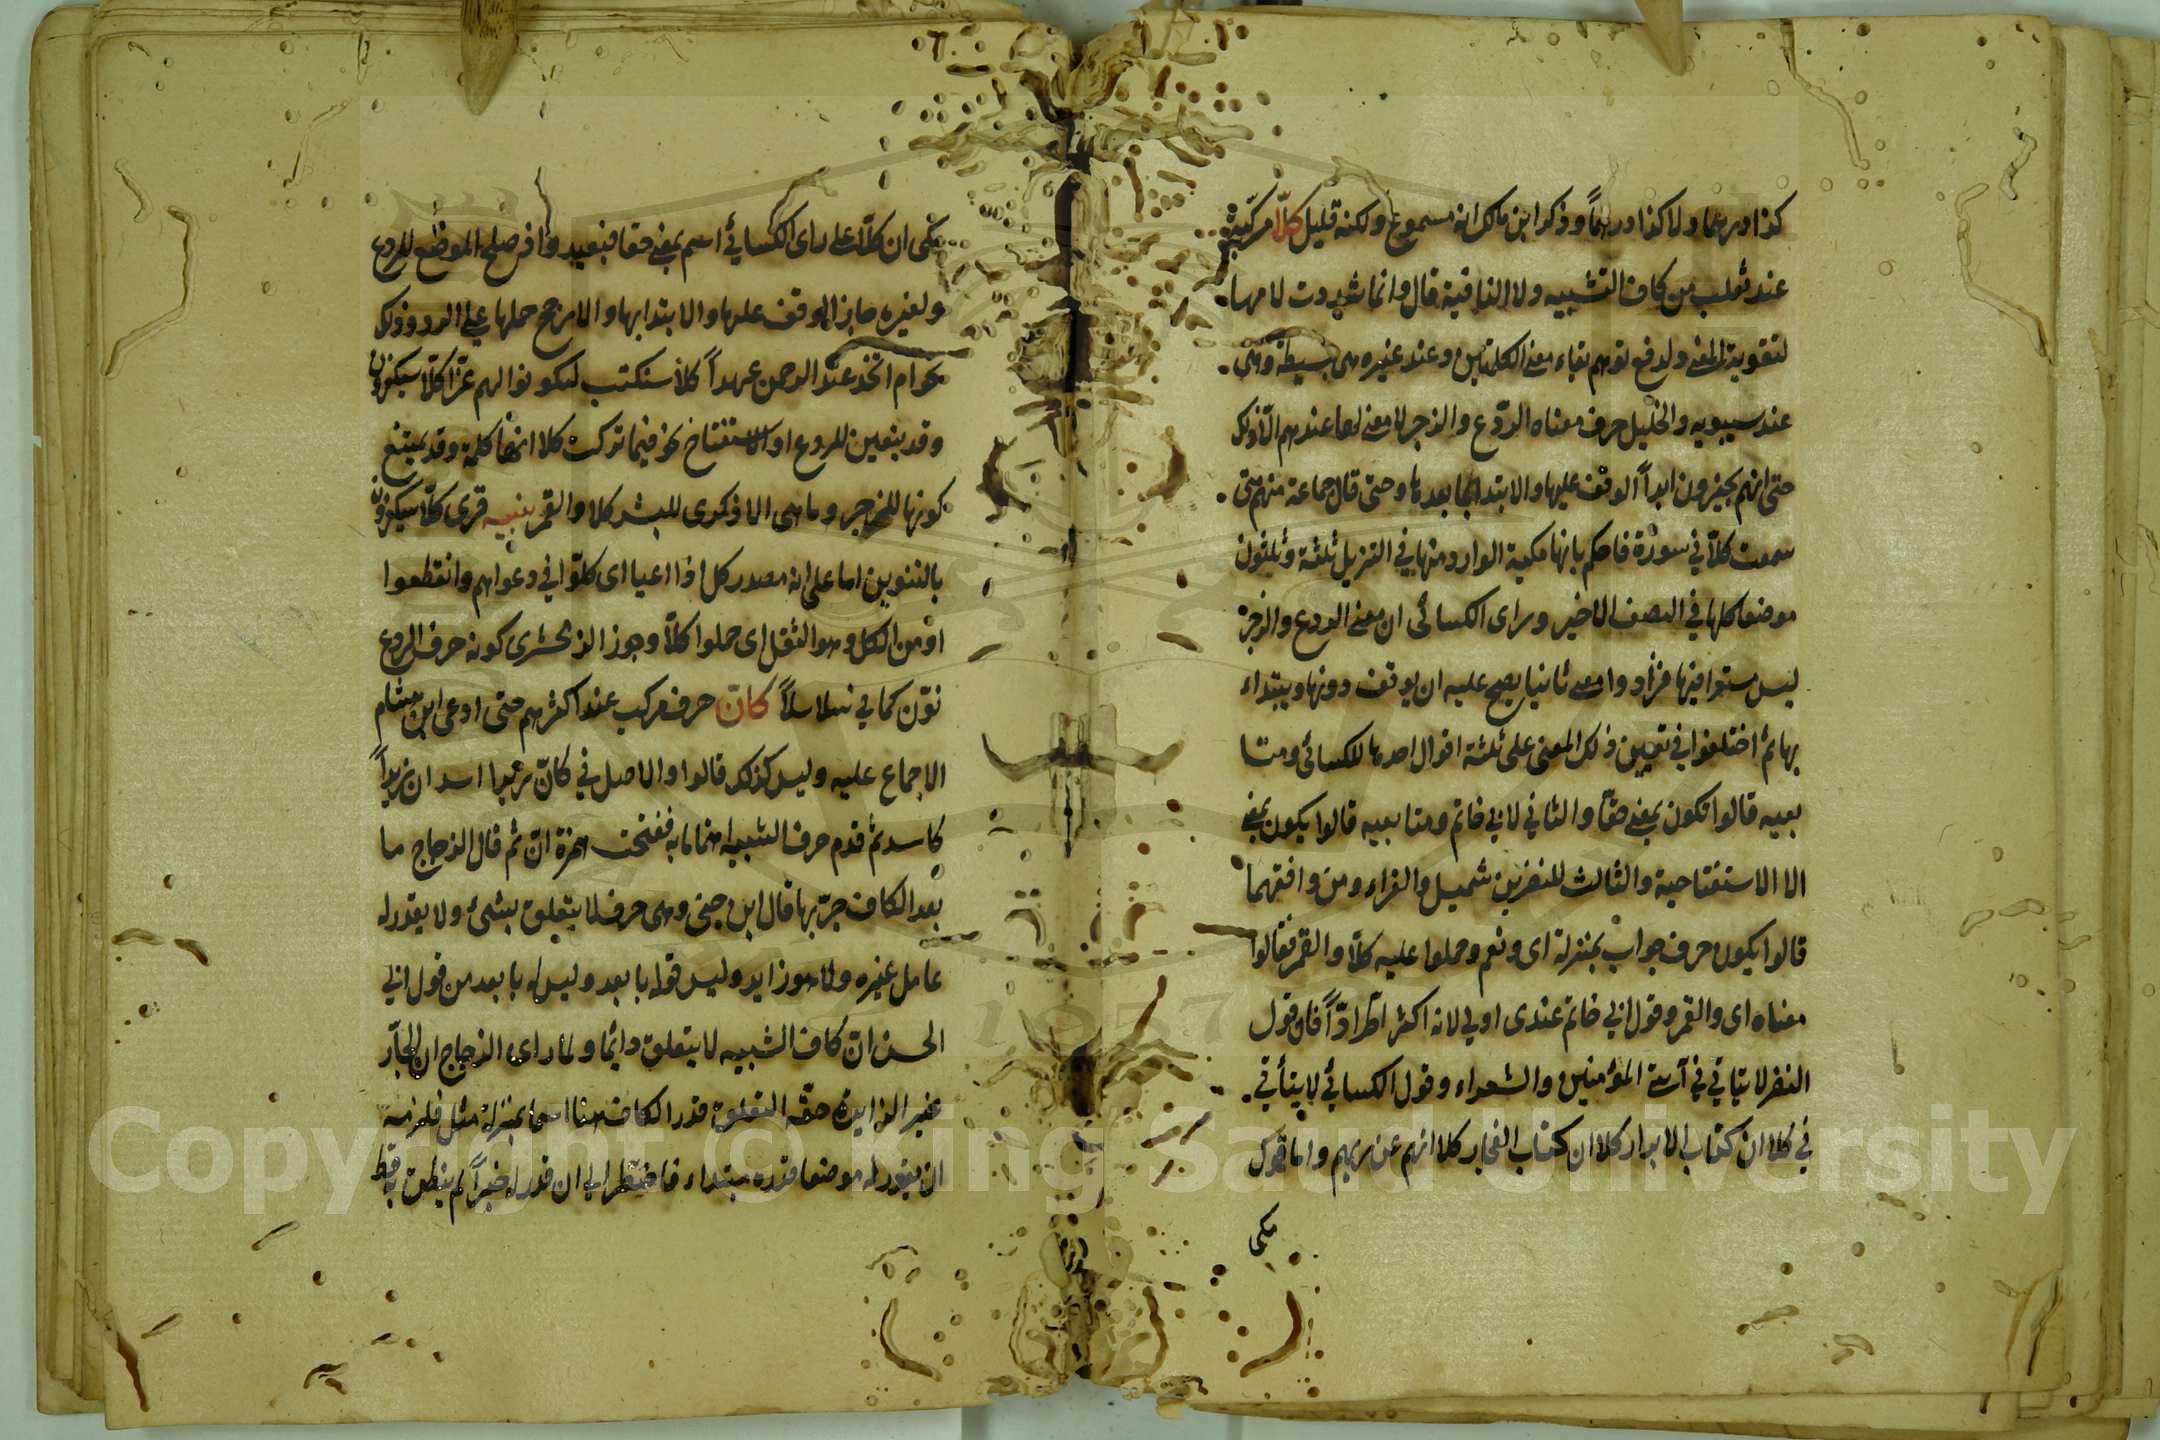 كذا درهما ولا كذا درهماً وذكر ابن مالك انه مسموع ولكنه قليل كلّا مركبة
عند ثعلب من كاف التشبيه ولا النافية قال وانما شددت لامها
لتقوية المعنى ولدفع توهم بقاء معنى الكلمتين وعند غيره هى بسيطة وهى
عند سيبويه والخليل حرف معناه الردع والزجر لا معنى لها عندهم الا ذلك
حتى انهم يجيزون ابداً الوقف عليها والابتدا بما بعدها وحتى قال جماعة منهم متى
سمعت كلّا في سورة فاحكم بانها مكية الوارد منها في التنزيل ثلثة وثلثون
موضعا كلها في النصف الاخير وراى الكسائى ان معنى الردع والزجر
ليس مستمرا فيها فزادوا معنى ثانيا يصح عليه ان يوقف دونها ويبتداء
بها ثم اختلفوا في تعيين ذلك المعنى على ثلثة اقوال احدها للكسائى ومتا
بعيه قالوا تكون بمعنى حقّا والثاني لابي حاتم ومتابعيه قالوا يكون بمعنى
الا الاستفتاحية والثالث للنضر بن شميل والفراء ومن وافقهما
قالوا يكون حرف جواب بمنزلة اى ونعم وحملوا عليه كلّا والقمر فقالوا
معناه اى والقمر وقول ابي حاتم عندى اولى لانه اكثر اطراداً فان قول
النضر لا يتاتي في آيتي المؤمنين والشعراء وقول الكسائي لا يتأتي
في كلا ان كتاب الابرار كلا ان كتاب الفجار كلا انهم عن ربهم واما قول
مكى
مكى ان كلّا على راى الكسائي اسم بمعنى حقا فبعيد واذا صلح الموضع للردع
ولغيره جاز الوقف عليها والابتدا بها والارجح حملها على الردع وذلك
نحو ام اتخذ عند الرحمن عهداً كلا سنكتب ليكونوا لهم عزا كلّا سيكفرون
وقد يتعين للردع او الاستفتاح نحو فيما تركت كلا انها كلمة وقد يمتنع
كونها للزجر وما هى الا ذكرى للبشر كلا والقمر تنبيه قرى كلّا سيكفرون
بالتنوين اما على انه مصدر كل اذا اعيا اى كلّوا في دعواهم وانقطعوا
او من الكل وهو الثقل اى حملوا كلّا وجوز الزمخشرى كونه حرف الردع
نوّن كما في سلاسلاً كأنّ حرف مركب عند اكثرهم حتى ادعى ابن هشام
الاجماع عليه وليس كذلك قالوا والاصل في كأنّ زيدا اسد ان زيداً
كاسد ثم قدم حرف التشبيه اهتماما به ففتحت همزة انّ ثم قال الزجاج ما
بعد الكاف جرّ بها قال ابن جنى وهى حرف لا يتعلق بشئ ولا يقدر له
عامل غيره ولا هو زايد وليس قوله بابعد وليس بابعد من قول ابي
الحسن انّ كاف التشبيه لا يتعلق دائما ولما راى الزجاج ان الجارّ
غير الزايد حقه التعلق قدر الكاف هنا اسما بمنزلة مثل فلزمه
ان يقدر له موضعا فقدره مبتداء فاضطر الى ان قدر له خبراً لم ينطق به قط